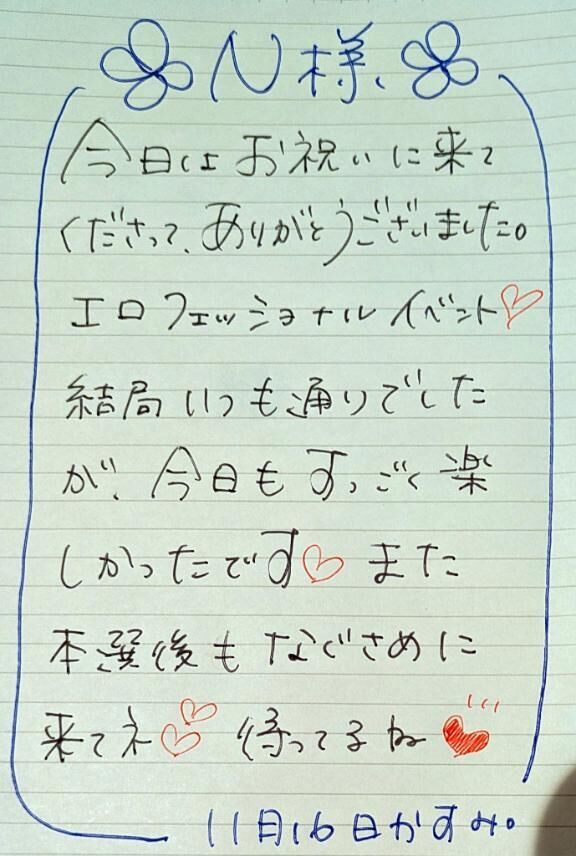 N様、
今日はお祝いに来て
くださって、ありがとうございました。
エロフェッショナルイベント♡
結局いつも通りでした
が、今日もすっごく楽
しかったです♡また
本選後もなぐさめに
来てネ♡♡待ってるね♥
11月16日かすみ。